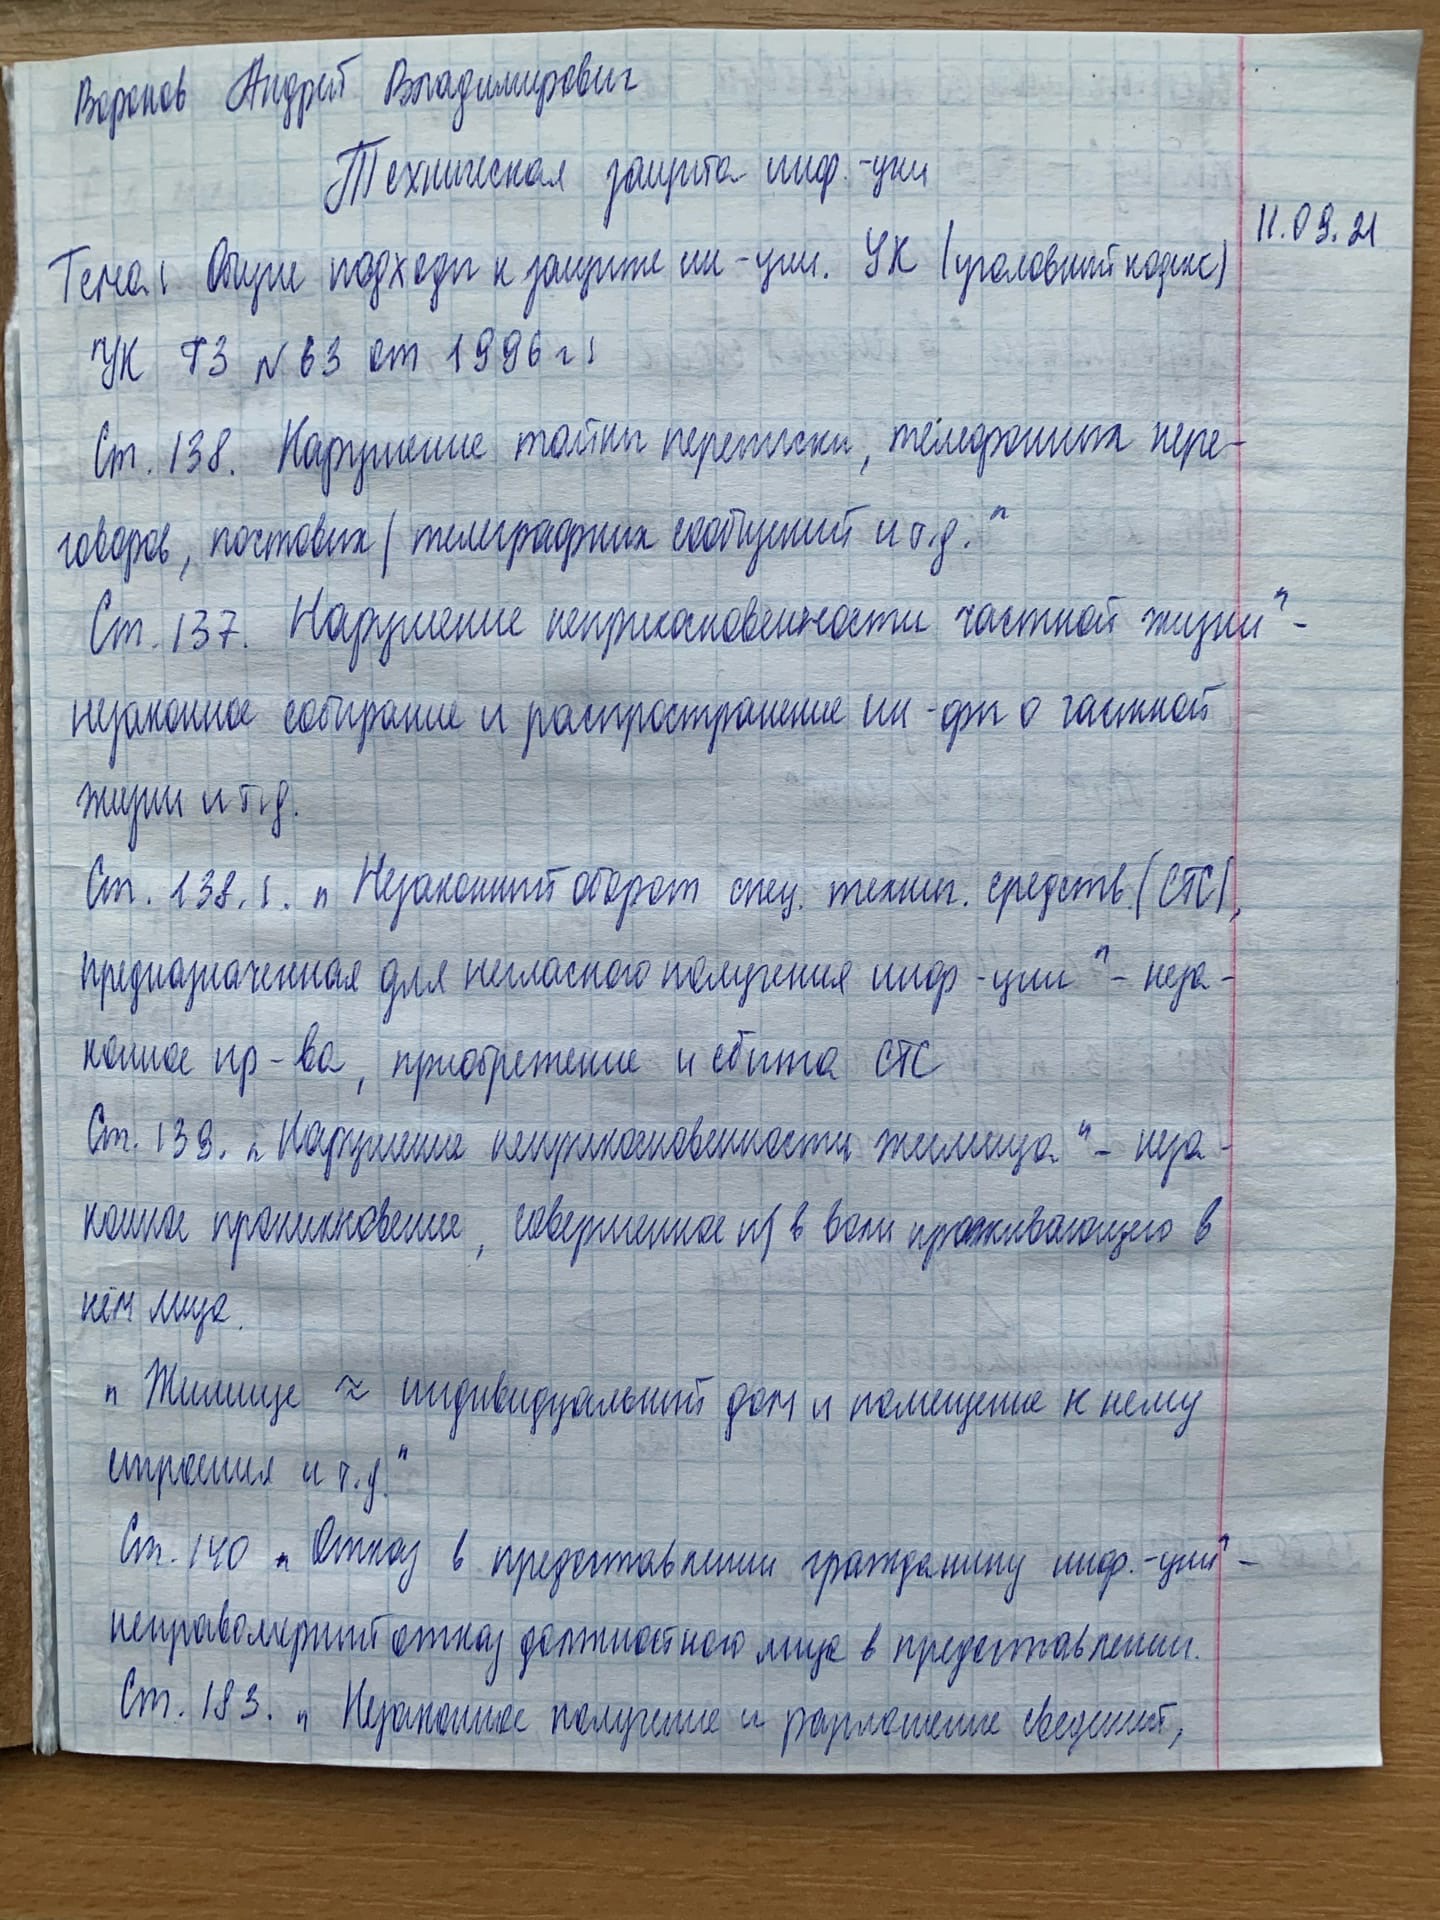 Воронов Андрей Владимирович
Техническая защита инф.-ции
11.09.21
Тема: Общие подходы к защите ин-ции. УК (уголовный кодекс)
"УК ФЗ №63 от 1996г:
Ст. 138. Нарушение тайны переписки, телефонных пере-
говоров, постовых/телеграфных сообщений и т.д."
Ст. 137. Нарушение неприкосновенности частной жизни" -
незаконное собирание и распространение ин-фы о частной
жизни и т.д.
Ст. 138.1. "Незаконный оборот спец. технич. средств.(СТС),
предназначенная для негласного получения инф-ции" - неза-
конное пр-ва, приобретение и сбыта СТС
Ст. 139. "Нарушение неприкосновенности жилища" - неза-
конное проникновение, совершенное п/в воли проживающего в
нём лица.
"Жилище ≈ индивидуальный дом и помещение к нему
строения и т.д."
Ст. 140 "Отказ в предоставлении гражданину инф.-ции" -
неправомерный отказ должностного лица в предоставлении.
Ст. 183. "Незаконное получение и разглошение сведений,